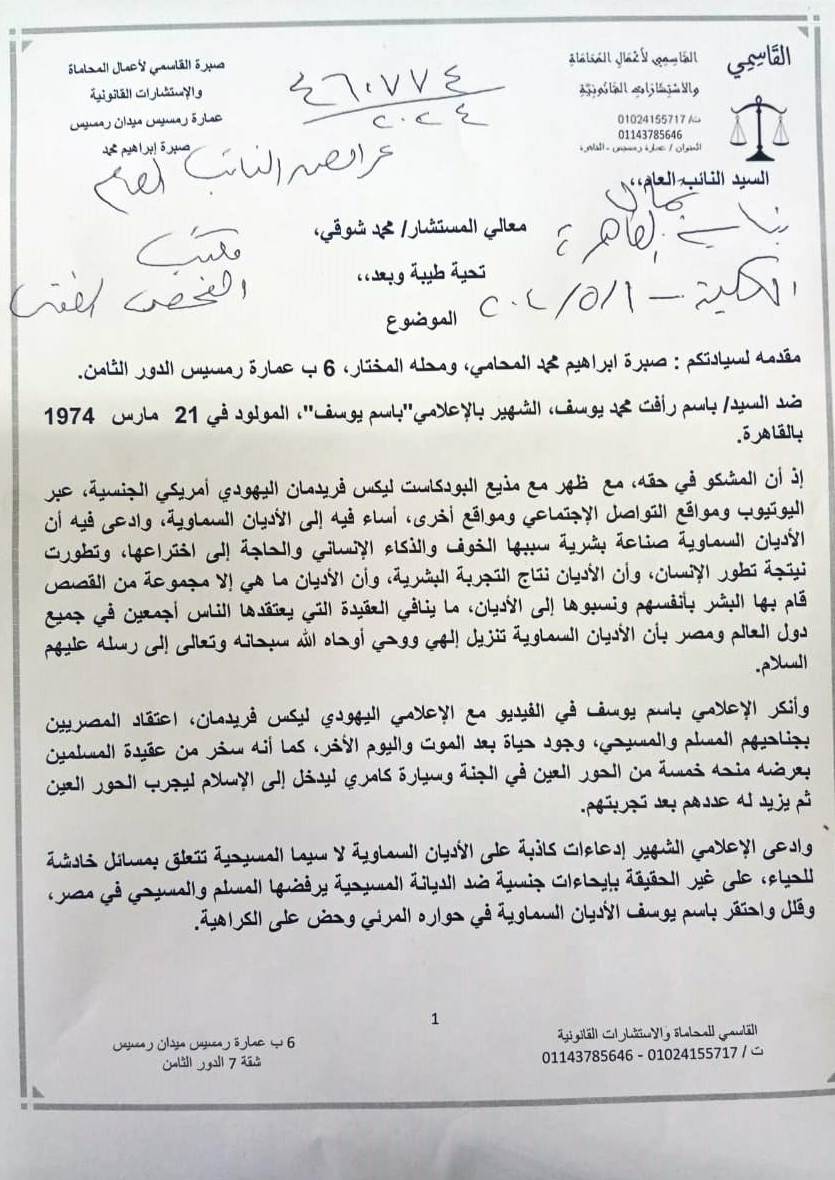 صبرة القاسمي لأعمال المحاماة
والإستشارات القانونية
عمارة رمسيس ميدان رمسيس
صبرة إبراهيم محمد
القَاسِمِي لأَعْمَالِ المُحَامَاةِ
والاسْتِشَارَاتِ القَانُونِيَّةِ
ت/ 01024155717
01143785646
العنوان / عمارة رمسيس - القاهرة
القَاسِمِي
٤٦٠٧٧٤
٢٠٢٤
عرائض النائب العام
السيد النائب العام،،
معالي المستشار/ محمد شوقي،
مكتب
تحية طيبة وبعد،،
الكلية
الموضوع
مقدمه لسيادتكم : صبرة ابراهيم محمد المحامي، ومحله المختار، 6 ب عمارة رمسيس الدور الثامن.
ضد السيد/ باسم رأفت محمد يوسف، الشهير بالإعلامي"باسم يوسف"، المولود في 21 مارس 1974
بالقاهرة.
إذ أن المشكو في حقه، مع ظهر مع مذيع البودكاست ليكس فريدمان اليهودي أمريكي الجنسية، عبر
اليوتيوب ومواقع التواصل الإجتماعي ومواقع أخرى، أساء فيه إلى الأديان السماوية، وادعى فيه أن
الأديان السماوية صناعة بشرية سببها الخوف والذكاء الإنساني والحاجة إلى اختراعها، وتطورت
نيتجة تطور الإنسان، وأن الأديان نتاج التجربة البشرية، وأن الأديان ما هي إلا مجموعة من القصص
قام بها البشر بأنفسهم ونسبوها إلى الأديان، ما ينافي العقيدة التي يعتقدها الناس أجمعين في جميع
دول العالم ومصر بأن الأديان السماوية تنزيل إلهي ووحي أوحاه الله سبحانه وتعالى إلى رسله عليهم
السلام.
وأنكر الإعلامي باسم يوسف في الفيديو مع الإعلامي اليهودي ليكس فريدمان، اعتقاد المصريين
بجناحيهم المسلم والمسيحي، وجود حياة بعد الموت واليوم الأخر، كما أنه سخر من عقيدة المسلمين
بعرضه منحه خمسة من الحور العين في الجنة وسيارة كامري ليدخل إلى الإسلام ليجرب الحور العين
ثم يزيد له عددهم بعد تجربتهم.
وادعى الإعلامي الشهير إدعاءات كاذبة على الأديان السماوية لا سيما المسيحية تتعلق بمسائل خادشة
للحياء، على غير الحقيقة بإيحاءات جنسية ضد الديانة المسيحية يرفضها المسلم والمسيحي في مصر،
وقلل واحتقر باسم يوسف الأديان السماوية في حواره المرئي وحض على الكراهية.
1
القاسمي للمحاماة والاستشارات القانونية
ت / 01024155717 - 01143785646
6 ب عمارة رمسيس ميدان رمسيس
شقة 7 الدور الثامن